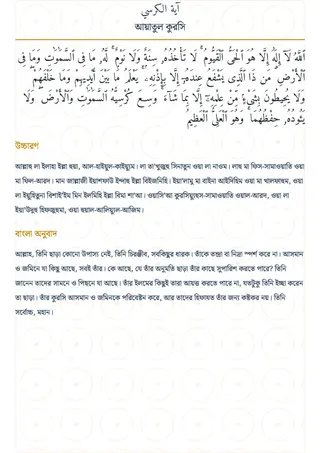 آية الكرسي
আয়াতুল কুরসি
اللَّهُ لَآ إِلَٰهَ إِلَّا هُوَ الْحَيُّ الْقَيُّومُ ۚ لَا تَأْخُذُهُ سِنَةٌ وَلَا نَوْمٌ ۚ لَّهُ مَا فِي السَّمَٰوَٰتِ وَمَا فِي
الْأَرْضِ ۗ مَن ذَا الَّذِي يَشْفَعُ عِندَهُ إِلَّا بِإِذْنِهِ ۚ يَعْلَمُ مَا بَيْنَ أَيْدِيهِمْ وَمَا خَلْفَهُمْ ۖ
وَلَا يُحِيطُونَ بِشَيْءٍ مِّنْ عِلْمِهِ إِلَّا بِمَا شَآءَ ۚ وَسِعَ كُرْسِيُّهُ السَّمَٰوَٰتِ وَالْأَرْضَ ۖ وَلَا
يَئُودُهُ حِفْظُهُمَا ۚ وَهُوَ الْعَلِيُّ الْعَظِيمُ
উচ্চারণ
আল্লাহু লা ইলাহা ইল্লা হুয়া, আল-হাইয়ুল-কাইয়্যুম। লা তা'খুজুহু সিনাতুন ওয়া লা নাওম। লাহু মা ফিস-সামাওয়াতি ওয়া
মা ফিল-আরদ। মান জাল্লাজী ইয়াশফাউ ইন্দাহু ইল্লা বিইজনিহি। ইয়া'লামু মা বাইনা আইদিহিম ওয়া মা খালফাহুম, ওয়া
লা ইয়ুহিতুনা বিশাই'ইম মিন ইলমিহি ইল্লা বিমা শা'আ। ওয়াসি'আ কুরসিয়্যুহুস-সামাওয়াতি ওয়াল-আরদ, ওয়া লা
ইয়া'উদুহু হিফজুহুমা, ওয়া হুয়াল-আলিয়্যুল-আজিম।
বাংলা অনুবাদ
আল্লাহ, তিনি ছাড়া কোনো উপাস্য নেই, তিনি চিরঞ্জীব, সবকিছুর ধারক। তাঁকে তন্দ্রা বা নিদ্রা স্পর্শ করে না। আসমান
ও জমিনে যা কিছু আছে, সবই তাঁর। কে আছে, যে তাঁর অনুমতি ছাড়া তাঁর কাছে সুপারিশ করতে পারে? তিনি
জানেন তাদের সামনে ও পিছনে যা আছে। তাঁর ইলমের কিছুই তারা আয়ত্ত করতে পারে না, যতটুকু তিনি ইচ্ছা করেন
তা ছাড়া। তাঁর কুরসি আসমান ও জমিনকে পরিবেষ্টন করে, আর তাদের হিফাযত তাঁর জন্য কষ্টকর নয়। তিনি
সর্বোচ্চ, মহান।